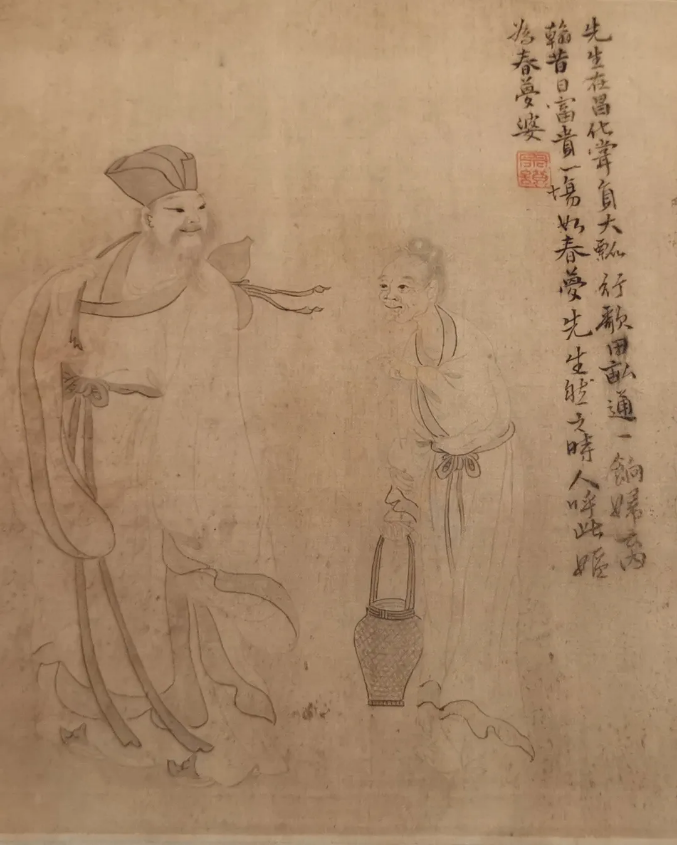 先生在昌化嘗負大瓢行歌田畝遇一餉婦云内
翰昔日富貴一場如春夢先生然之時人呼此嫗
為春夢婆